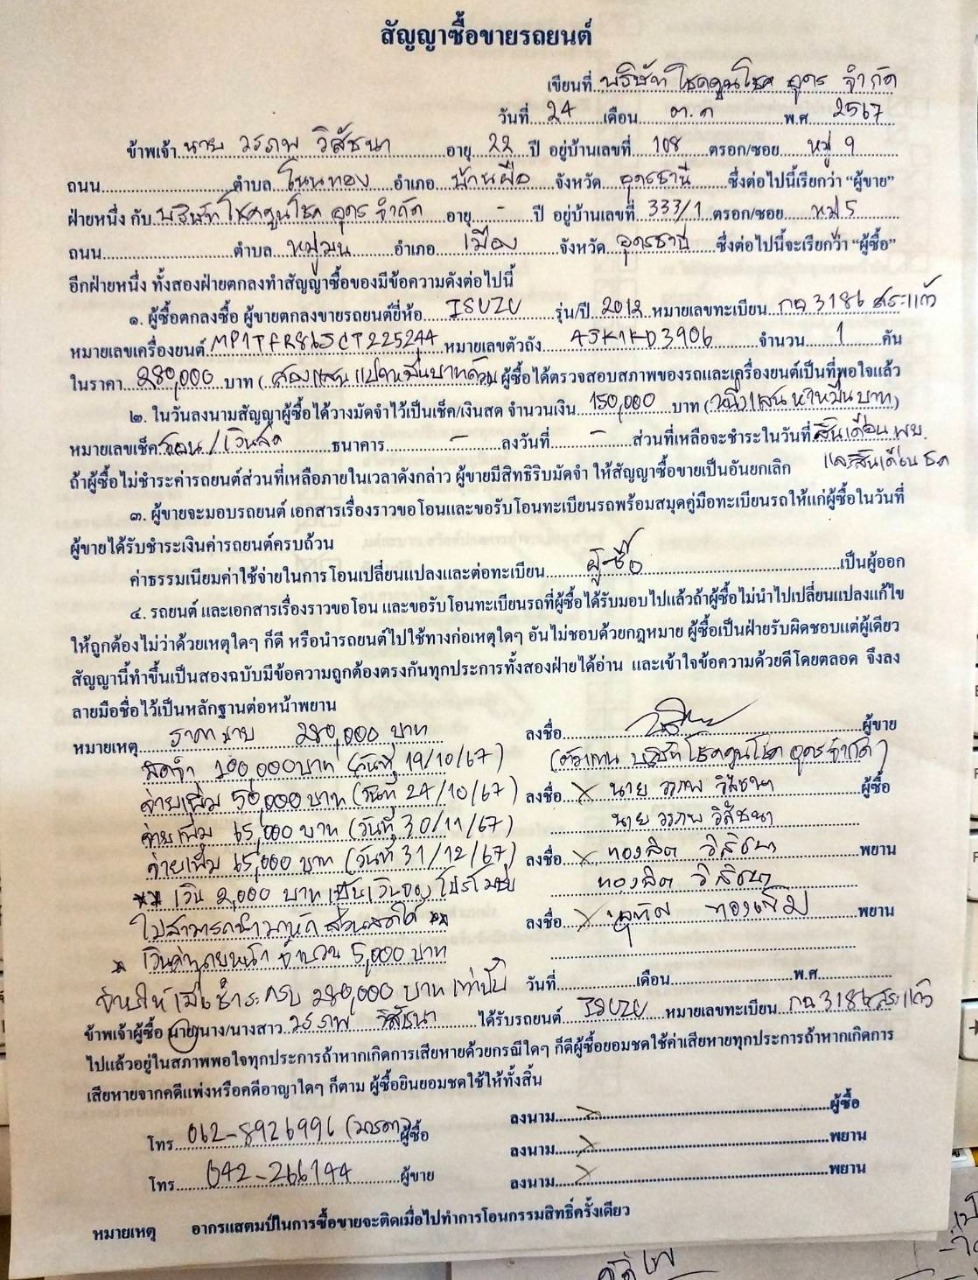 สัญญาซื้อขายรถยนต์
เขียนที่ บริษัท โชคคูนโชค อุดร จำกัด
วันที่ 24 เดือน ต.ค พ.ศ 2567
ข้าพเจ้า นาย วรภพ วิสัชนา อายุ 22 ปี อยู่บ้านเลขที่ 108 ตรอก/ซอย หมู่ 9
ถนน ตำบล โนนทอง อำเภอ บ้านผือ จังหวัด อุดรธานี ซึ่งต่อไปนี้เรียกว่า “ผู้ขาย”
ฝ่ายหนึ่ง กับ บริษัท โชคคูนโชค อุดร จำกัด อายุ - ปี อยู่บ้านเลขที่ 333/1 ตรอก/ซอย หมู่ 5
ถนน ตำบล หมูม่น อำเภอ เมือง จังหวัด อุดรธานี ซึ่งต่อไปนี้จะเรียกว่า “ผู้ซื้อ”
อีกฝ่ายหนึ่ง ทั้งสองฝ่ายตกลงทำสัญญาซื้อของมีข้อความดังต่อไปนี้
๑. ผู้ซื้อตกลงซื้อ ผู้ขายตกลงขายรถยนต์ยี่ห้อ ISUZU รุ่น/ปี 2012 หมายเลขทะเบียน กฉ 3186 สระแก้ว
หมายเลขเครื่องยนต์ MP1TFR86JCT225244 หมายเลขตัวถัง 4JK1KD3906 จำนวน 1 คัน
ในราคา 280,000 บาท ( สองแสนแปดหมื่นบาทถ้วน ผู้ซื้อได้ตรวจสอบสภาพของรถและเครื่องยนต์เป็นที่พอใจแล้ว
๒. ในวันลงนามสัญญาผู้ซื้อได้วางมัดจำไว้เป็นเช็ค/เงินสด จำนวนเงิน 150,000 บาท ( หนึ่งแสนห้าหมื่นบาท )
หมายเลขเช็ค โอน/เงินสด ธนาคาร - ลงวันที่ - ส่วนที่เหลือจะชำระในวันที่ สิ้นเดือน พย.
ถ้าผู้ซื้อไม่ชำระค่ารถยนต์ส่วนที่เหลือภายในเวลาดังกล่าว ผู้ขายมีสิทธิริบมัดจำ ให้สัญญาซื้อขายเป็นอันยกเลิก และสิ้นเดือน ธค
๓. ผู้ขายจะมอบรถยนต์ เอกสารเรื่องราวขอโอนและขอรับโอนทะเบียนรถพร้อมสมุดคู่มือทะเบียนรถให้แก่ผู้ซื้อในวันที่
ผู้ขายได้รับชำระเงินค่ารถยนต์ครบถ้วน
ค่าธรรมเนียมค่าใช้จ่ายในการโอนเปลี่ยนแปลงและต่อทะเบียน ผู้ซื้อ เป็นผู้ออก
๔. รถยนต์ และเอกสารเรื่องราวขอโอน และขอรับโอนทะเบียนรถที่ผู้ซื้อได้รับมอบไปแล้วถ้าผู้ซื้อไม่นำไปเปลี่ยนแปลงแก้ไข
ให้ถูกต้องไม่ว่าด้วยเหตุใดๆ ก็ดี หรือนำรถยนต์ไปใช้ทางก่อเหตุใดๆ อันไม่ชอบด้วยกฎหมาย ผู้ซื้อเป็นฝ่ายรับผิดชอบแต่ผู้เดียว
สัญญานี้ทำขึ้นเป็นสองฉบับมีข้อความถูกต้องตรงกันทุกประการทั้งสองฝ่ายได้อ่าน และเข้าใจข้อความด้วยดีโดยตลอด จึงลง
ลายมือชื่อไว้เป็นหลักฐานต่อหน้าพยาน
หมายเหตุ ราคาขาย 280,000 บาท
มัดจำ 100,000 บาท (วันที่ 19/10/67)
จ่ายเพิ่ม 50,000 บาท (วันที่ 24/10/67)
จ่ายเพิ่ม 65,000 บาท (วันที่ 30/11/67)
จ่ายเพิ่ม 65,000 บาท (วันที่ 31/12/67)
** เงิน 2,000 บาท เป็นเงินจองโปรโมชั่น
ไม่สามารถนำมาหักส่วนลดได้ **
* เงินค่านายหน้า จำนวน 5,000 บาท
จ่ายให้เมื่อชำระครบ 280,000 บาท เท่านั้น
ลงชื่อ ผู้ขาย
(ตัวแทน บริษัท โชคคูนโชค อุดร จำกัด)
ลงชื่อ x นาย วรภพ วิสัชนา ผู้ซื้อ
นาย วรภพ วิสัชนา
ลงชื่อ x ทองลิต วิสัชนา พยาน
ทองลิต วิสัชนา
ลงชื่อ x พยาน
วันที่ เดือน พ.ศ
ข้าพเจ้าผู้ซื้อ นาย/นาง/นางสาว วรภพ วิสัชนา ได้รับรถยนต์ ISUZU หมายเลขทะเบียน กฉ 3186 สระแก้ว
ไปแล้วอยู่ในสภาพพอใจทุกประการถ้าหากเกิดการเสียหายด้วยกรณีใดๆ ก็ดีผู้ซื้อยอมชดใช้ค่าเสียหายทุกประการถ้าหากเกิดการ
เสียหายจากคดีแพ่งหรือคดีอาญาใดๆ ก็ตาม ผู้ซื้อยินยอมชดใช้ให้ทั้งสิ้น
โทร 062-8926996 (มารดา) ผู้ซื้อ
โทร 042-266144 ผู้ขาย
ลงนาม x ผู้ซื้อ
ลงนาม x พยาน
ลงนาม x พยาน
หมายเหตุ อากรแสตมป์ในการซื้อขายจะติดเมื่อไปทำการโอนกรรมสิทธิ์ครั้งเดียว